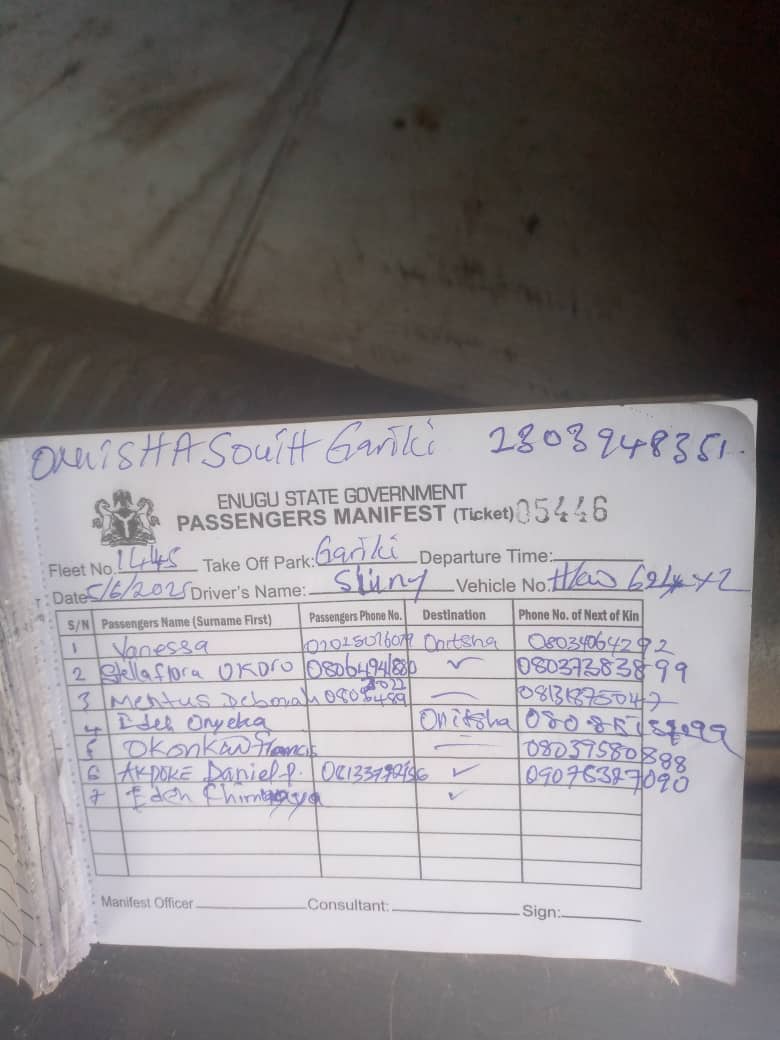 ONUISHA SOUTH Gariki 2303948351.
ENUGU STATE GOVERNMENT
PASSENGERS MANIFEST (Ticket) 05446
Fleet No. 1445 Take Off Park: Gariki Departure Time:
Date 5/6/2025 Driver's Name: Vehicle No.
S/N Passengers Name (Surname First) Passengers Phone No. Destination Phone No. of Next of Kin
1 Vanessa Onitsha 08034064292
2 Stellaflora OKORO 08037383899
3 Mentus Deborah 08131875047
4 Edeh Onyeka Onitsha
5 Okonkwo Francis 08037580888
6 Daniel P. 09076327090
7 Edeh
Manifest Officer Consultant: Sign: